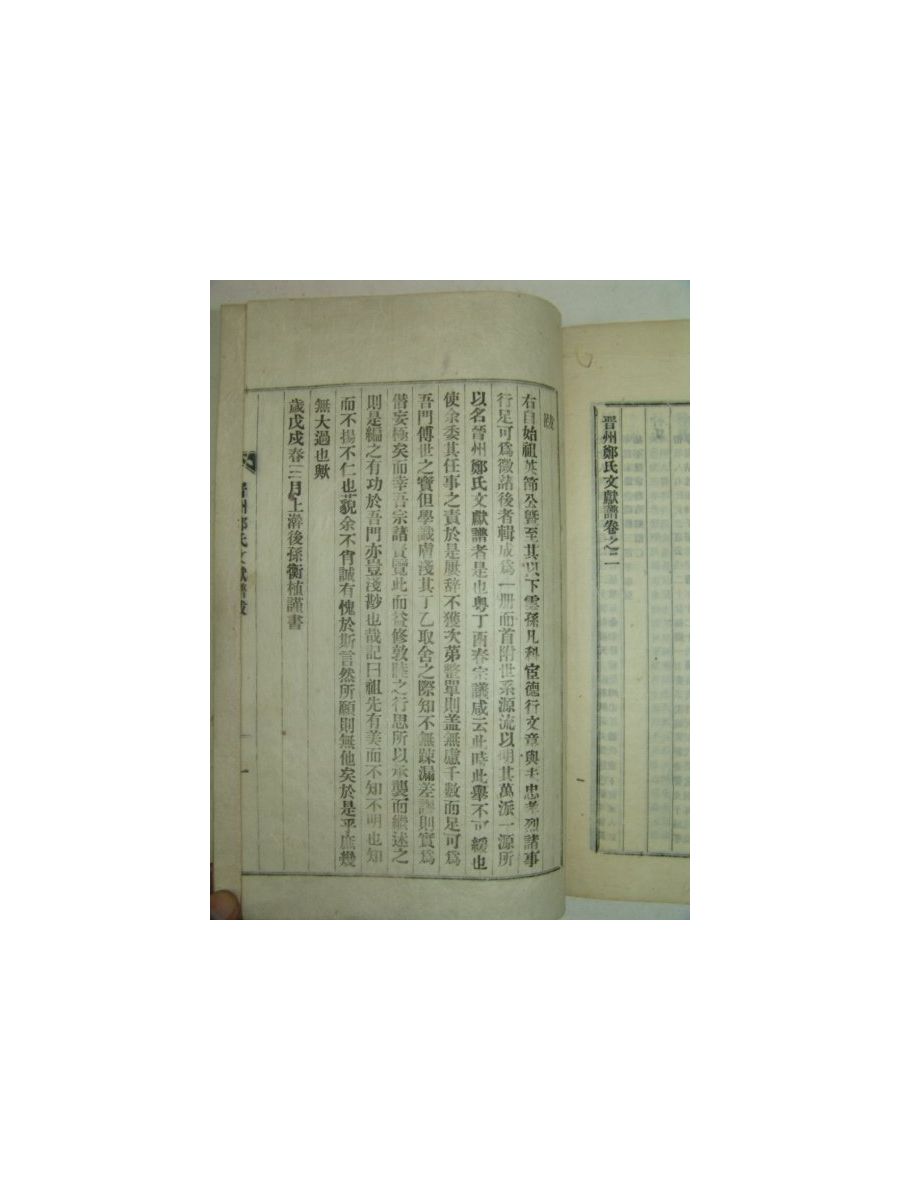 晋州鄭氏文獻譜卷之二
跋
右自始祖英節公曁至其以下雲孫凡科宦德行文章與夫忠孝烈諸事
行足可爲徵諸後者輯成爲一册而首附世系源流以明其萬派一源所
以名晉州鄭氏文獻譜者是也粤丁酉春宗議咸云此時此擧不可緩也
使余委其任事之責於是屢辞不獲次第整單則盖無慮千數而足可爲
吾門傳世之寶但學識膚淺其丁乙取舍之際知不無踈漏差謬則實爲
僭妄極矣而幸吾宗諸賢覽此而益修敦睦之行思所以承襲而繼述之
則是編之有功於吾門亦豈淺尠也哉記曰祖先有美而不知不明也知
而不揚不仁也藐余不肖誠有愧於斯言然所願則無他矣於是乎庶幾
無大過也歟
歲戊戌春三月上澣後孫衡植謹書
晉州鄭氏文獻譜跋
一